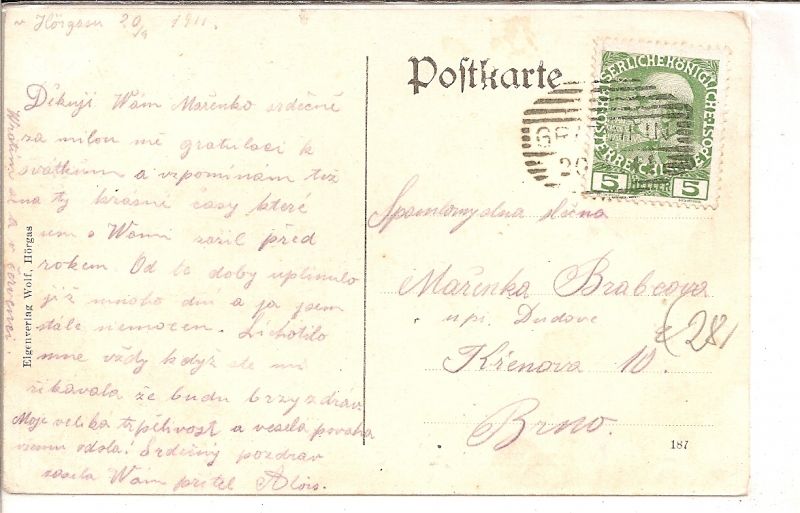 v Hörgasu 20/4 1911.
Děkuji Vám Mařenko srdečně
za milou mě gratulaci k
svátkům a vzpomínám též
na ty krásné časy které
sem s Vámi zažil před
rokem. Od te doby uplinulo
již mnoho dní a ja jsem
stále nemocen. Lichotilo
mne vždy když ste mi
řikávala že budu brzy zdráv
Moje velika trpělivost a vesela povaha
všemu odola! Srdečný pozdrav
Vám přítel Alois.
Vratím se a v červenci.
Eigenverlag Wolf, Hörgas
Postkarte
KAISERLICHE KÖNIGLICHE ÖSTERREICHISCHE POST
5 HELLER 5
GRATWEIN
20
slečna
Mařenka Brabcova
u pí. Dudove
Křenova 10.
Brno.
(281
187